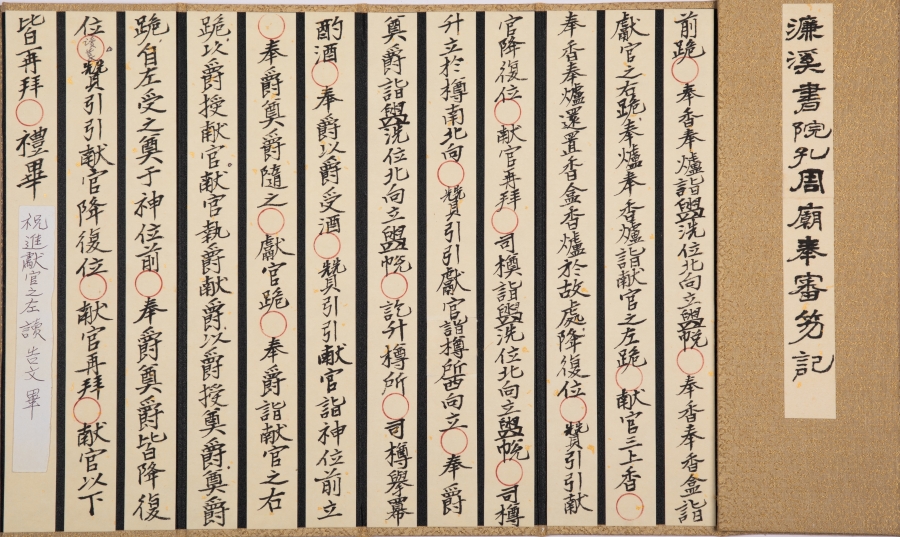 濂溪書院孔周廟奉審笏記
前跪○奉香奉爐詣盥洗位北向立盥帨○奉香奉香盒詣
獻官之右跪奉爐奉香爐詣献官之左跪○献官三上香○
奉香奉爐還置香盒香爐於故處降復位○贊引引献
官降復位○献官再拜○司樽詣盥洗位北向立盥帨○司樽
升立於樽南北向○贊引引獻官詣樽所西向立○奉爵
奠爵詣盥洗位北向立盥帨○訖升樽所○司樽擧冪
酌酒○奉爵以爵受酒○贊引引献官詣神位前立
○奉爵奠爵隨之○獻官跪○奉爵詣献官之右
跪以爵授献官献官執爵献爵以爵授奠爵奠爵
跪自左受之奠于神位前○奉爵奠爵皆降復
位○讀告○贊引引献官降復位○献官再拜○献官以下
皆再拜○禮畢
祝進獻官之左讀告文畢